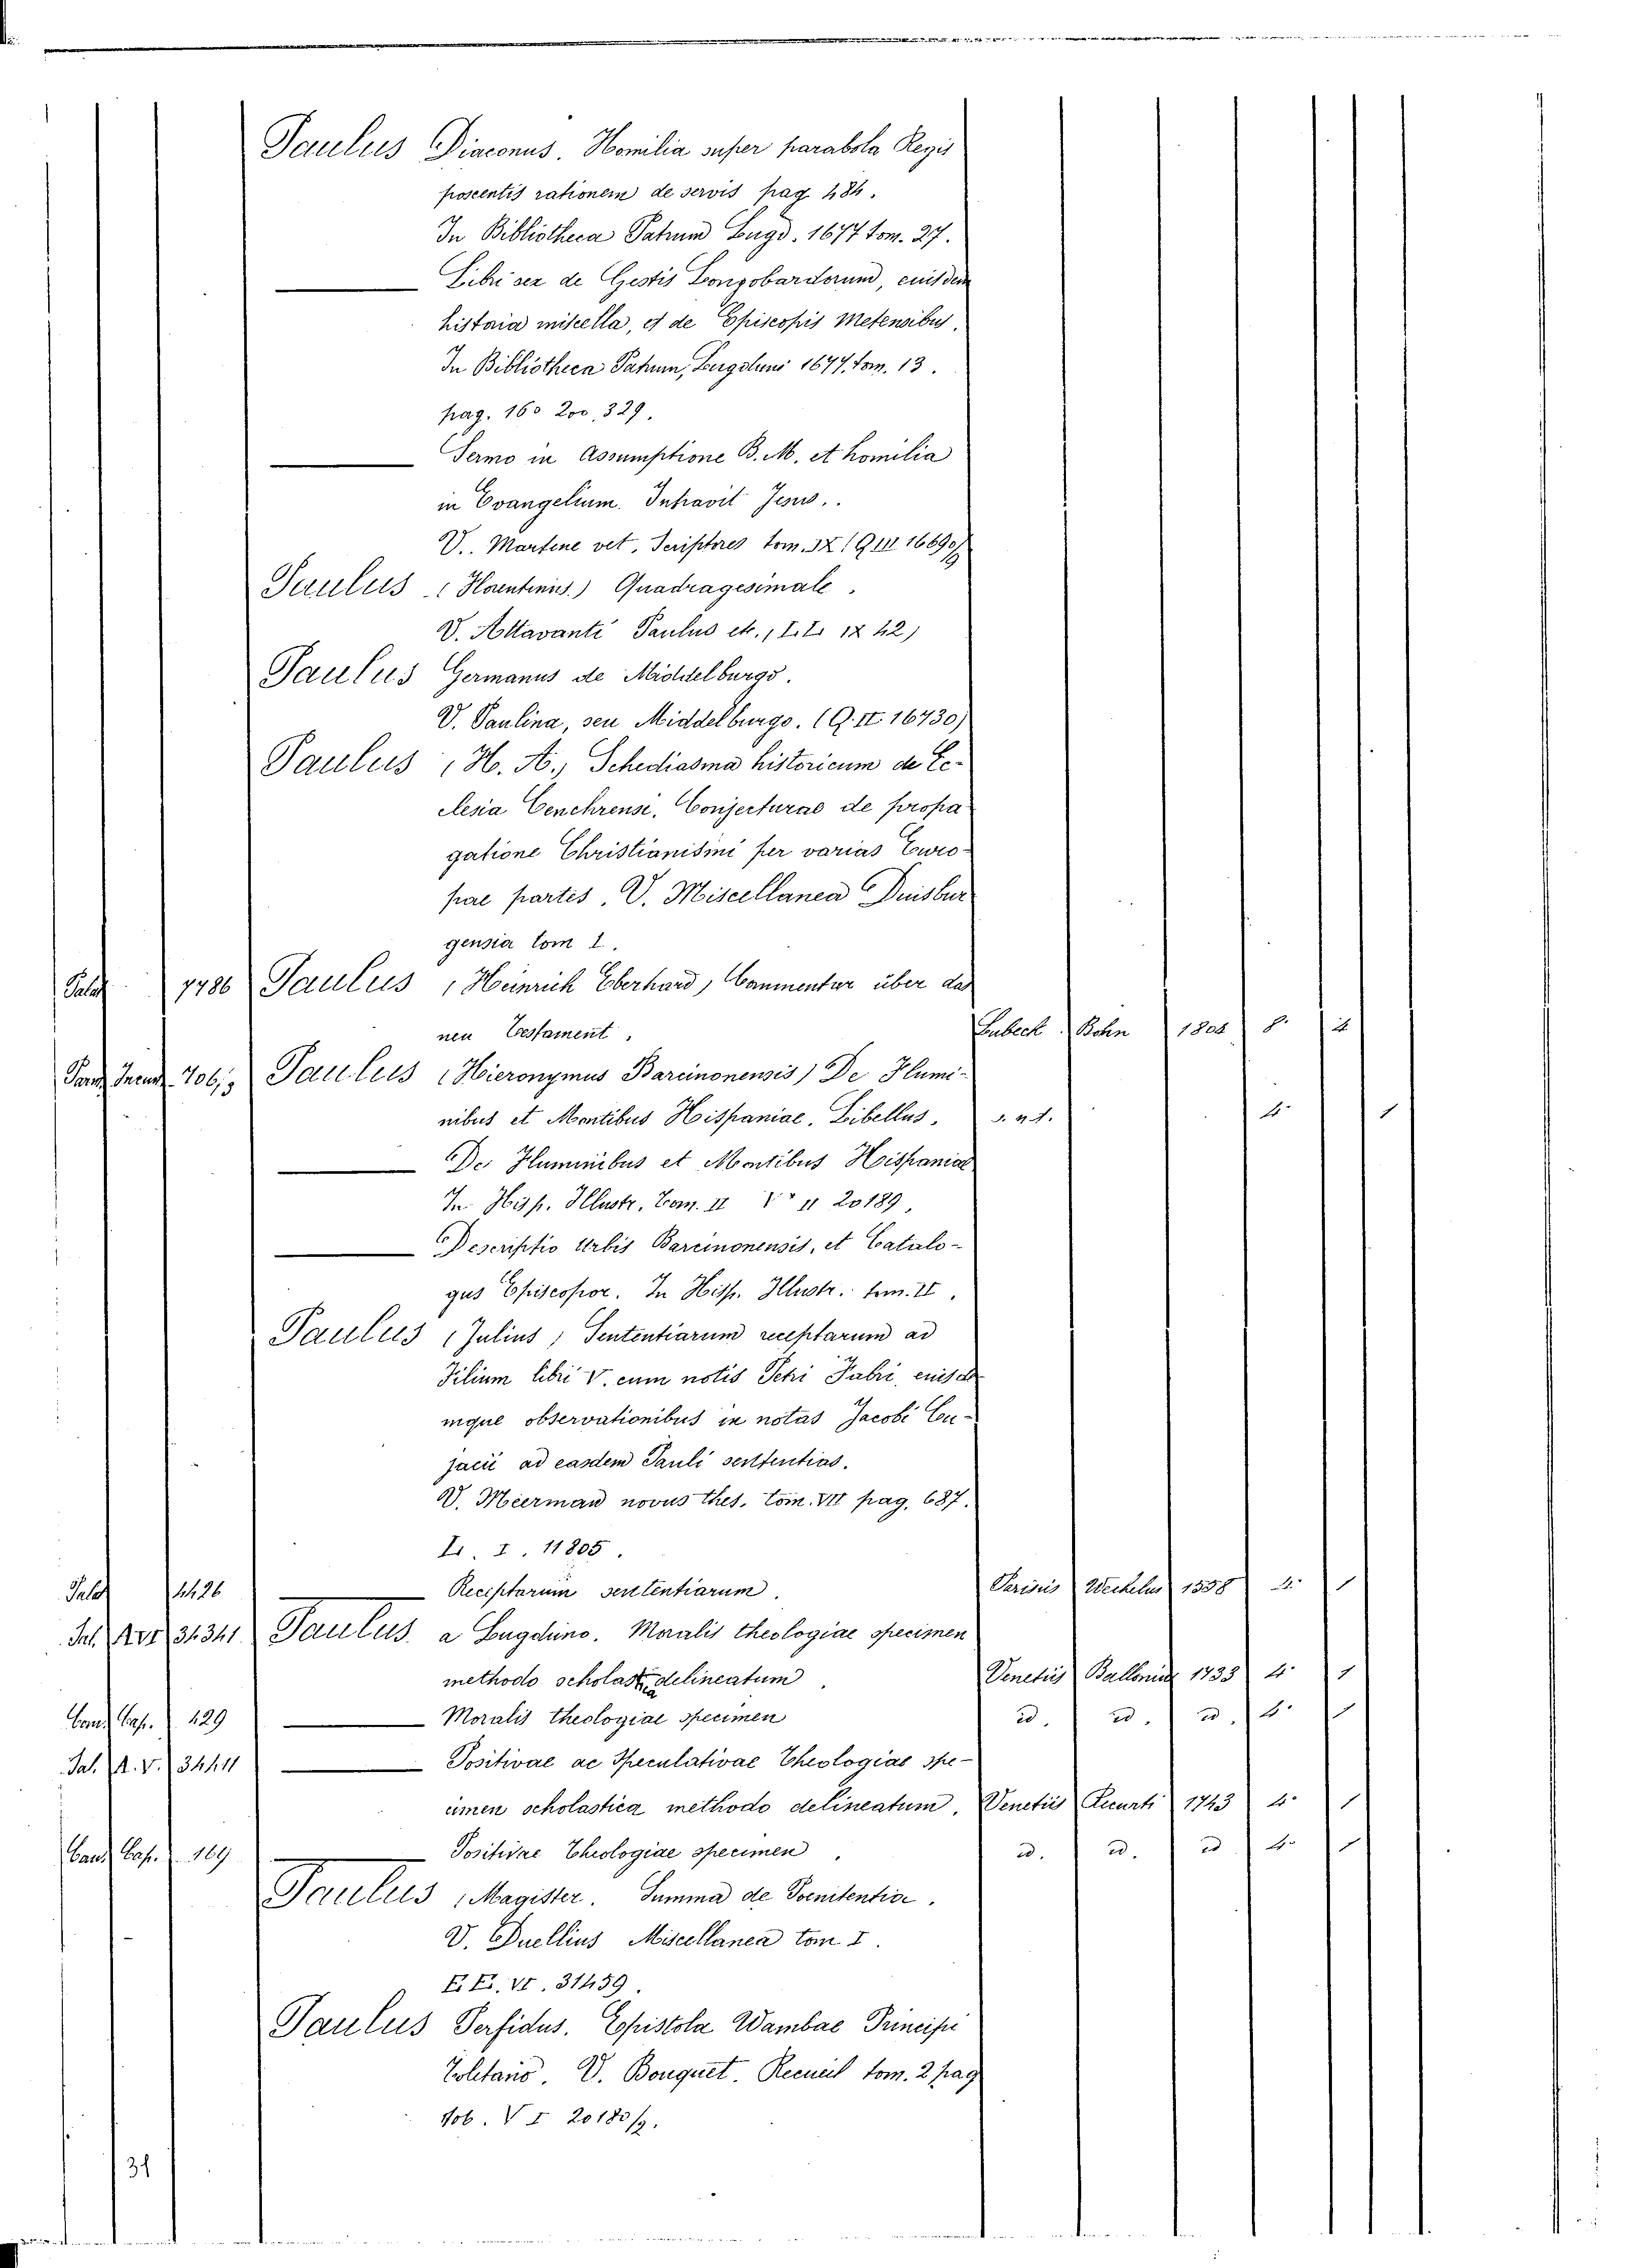 Paulus Diaconus. Homilia super parabola Regis
poscentis rationem de servis pag 484.
In Bibliotheca Patrum Lugd. 1677 tom. 27.
Libri sex de Gestis Longobardorum, eiusdem
historia miscella, et de Episcopis Metensibus.
In Bibliotheca Patrum, Lugduni 1677. tom. 13.
pag. 160 200, 329.
Sermo in Assumptione B. M. et homilia
in Evangelium. Intravit Jesus.
V. Martene vet. Scriptores tom. IX (Q III 16690/9
Paulus (Florentinus.) Quadragesimale.
V. Attavanti Paulus etc. (I. I. IX 42)
Paulus Germanus de Middelburgo.
V. Paulina, seu Middelburgo. (Q. II. 16730)
Paulus (H. A.) Schediasma historicum de Ec-
clesia Cenchrensi. Conjecturae de propa
gatione Christianismi per varias Euro-
pae partes. V. Miscellanea Duisbur
gensia tom I.
Palat 7786 Paulus (Heinrich Eberhard) Commentar über das
neu Testament. Lubeck Bohn 1808 8.
706/3 Paulus (Hieronymus Barcinonensis) De Flumi-
nibus et Montibus Hispaniae. Libellus. s. n. t. 4. 1
De Fluminibus et Montibus Hispaniae
In Hisp. Illustr. Tom. II 20189,
Descriptio Urbis Barcinonensis, et Catalo-
gus Episcopor. In Hisp. Illustr. tom. II.
Paulus (Julius) Sententiarum receptarum ad
Filium libri V. cum notis Petri Fabri, eiusde
mque observationibus in notas Jacobi Cu-
jacii ad easdem Pauli sententias.
V. Meerman novus thes. tom. VII pag. 687.
L. I. 11805.
Palat 4426 Receptarum sententiarum. Parisiis Wechelus 1558 4. 1
34341 Paulus a Lugduno. Moralis theologiae specimen
methodo scholastica delineatum. Venetiis Balleonius 1733 4. 1
Cap. 429 Moralis theologiae specimen id. id. id. 4. 1
A. V. 34411 Positivae ac Speculativae Theologiae spe-
cimen scholastica methodo delineatum. Venetiis Recurti 1743 4. 1
Cap. 169 Positivae Theologiae specimen id. id. id 4. 1
Paulus (Magister. Summa de Poenitentia.
V. Duellius Miscellanea tom I.
E. E. VI. 31459.
Paulus Perfidus. Epistola Wambae Principi
Toletano. V. Bouquet. Recueil tom. 2 pag
706. V I 20180/9.
31